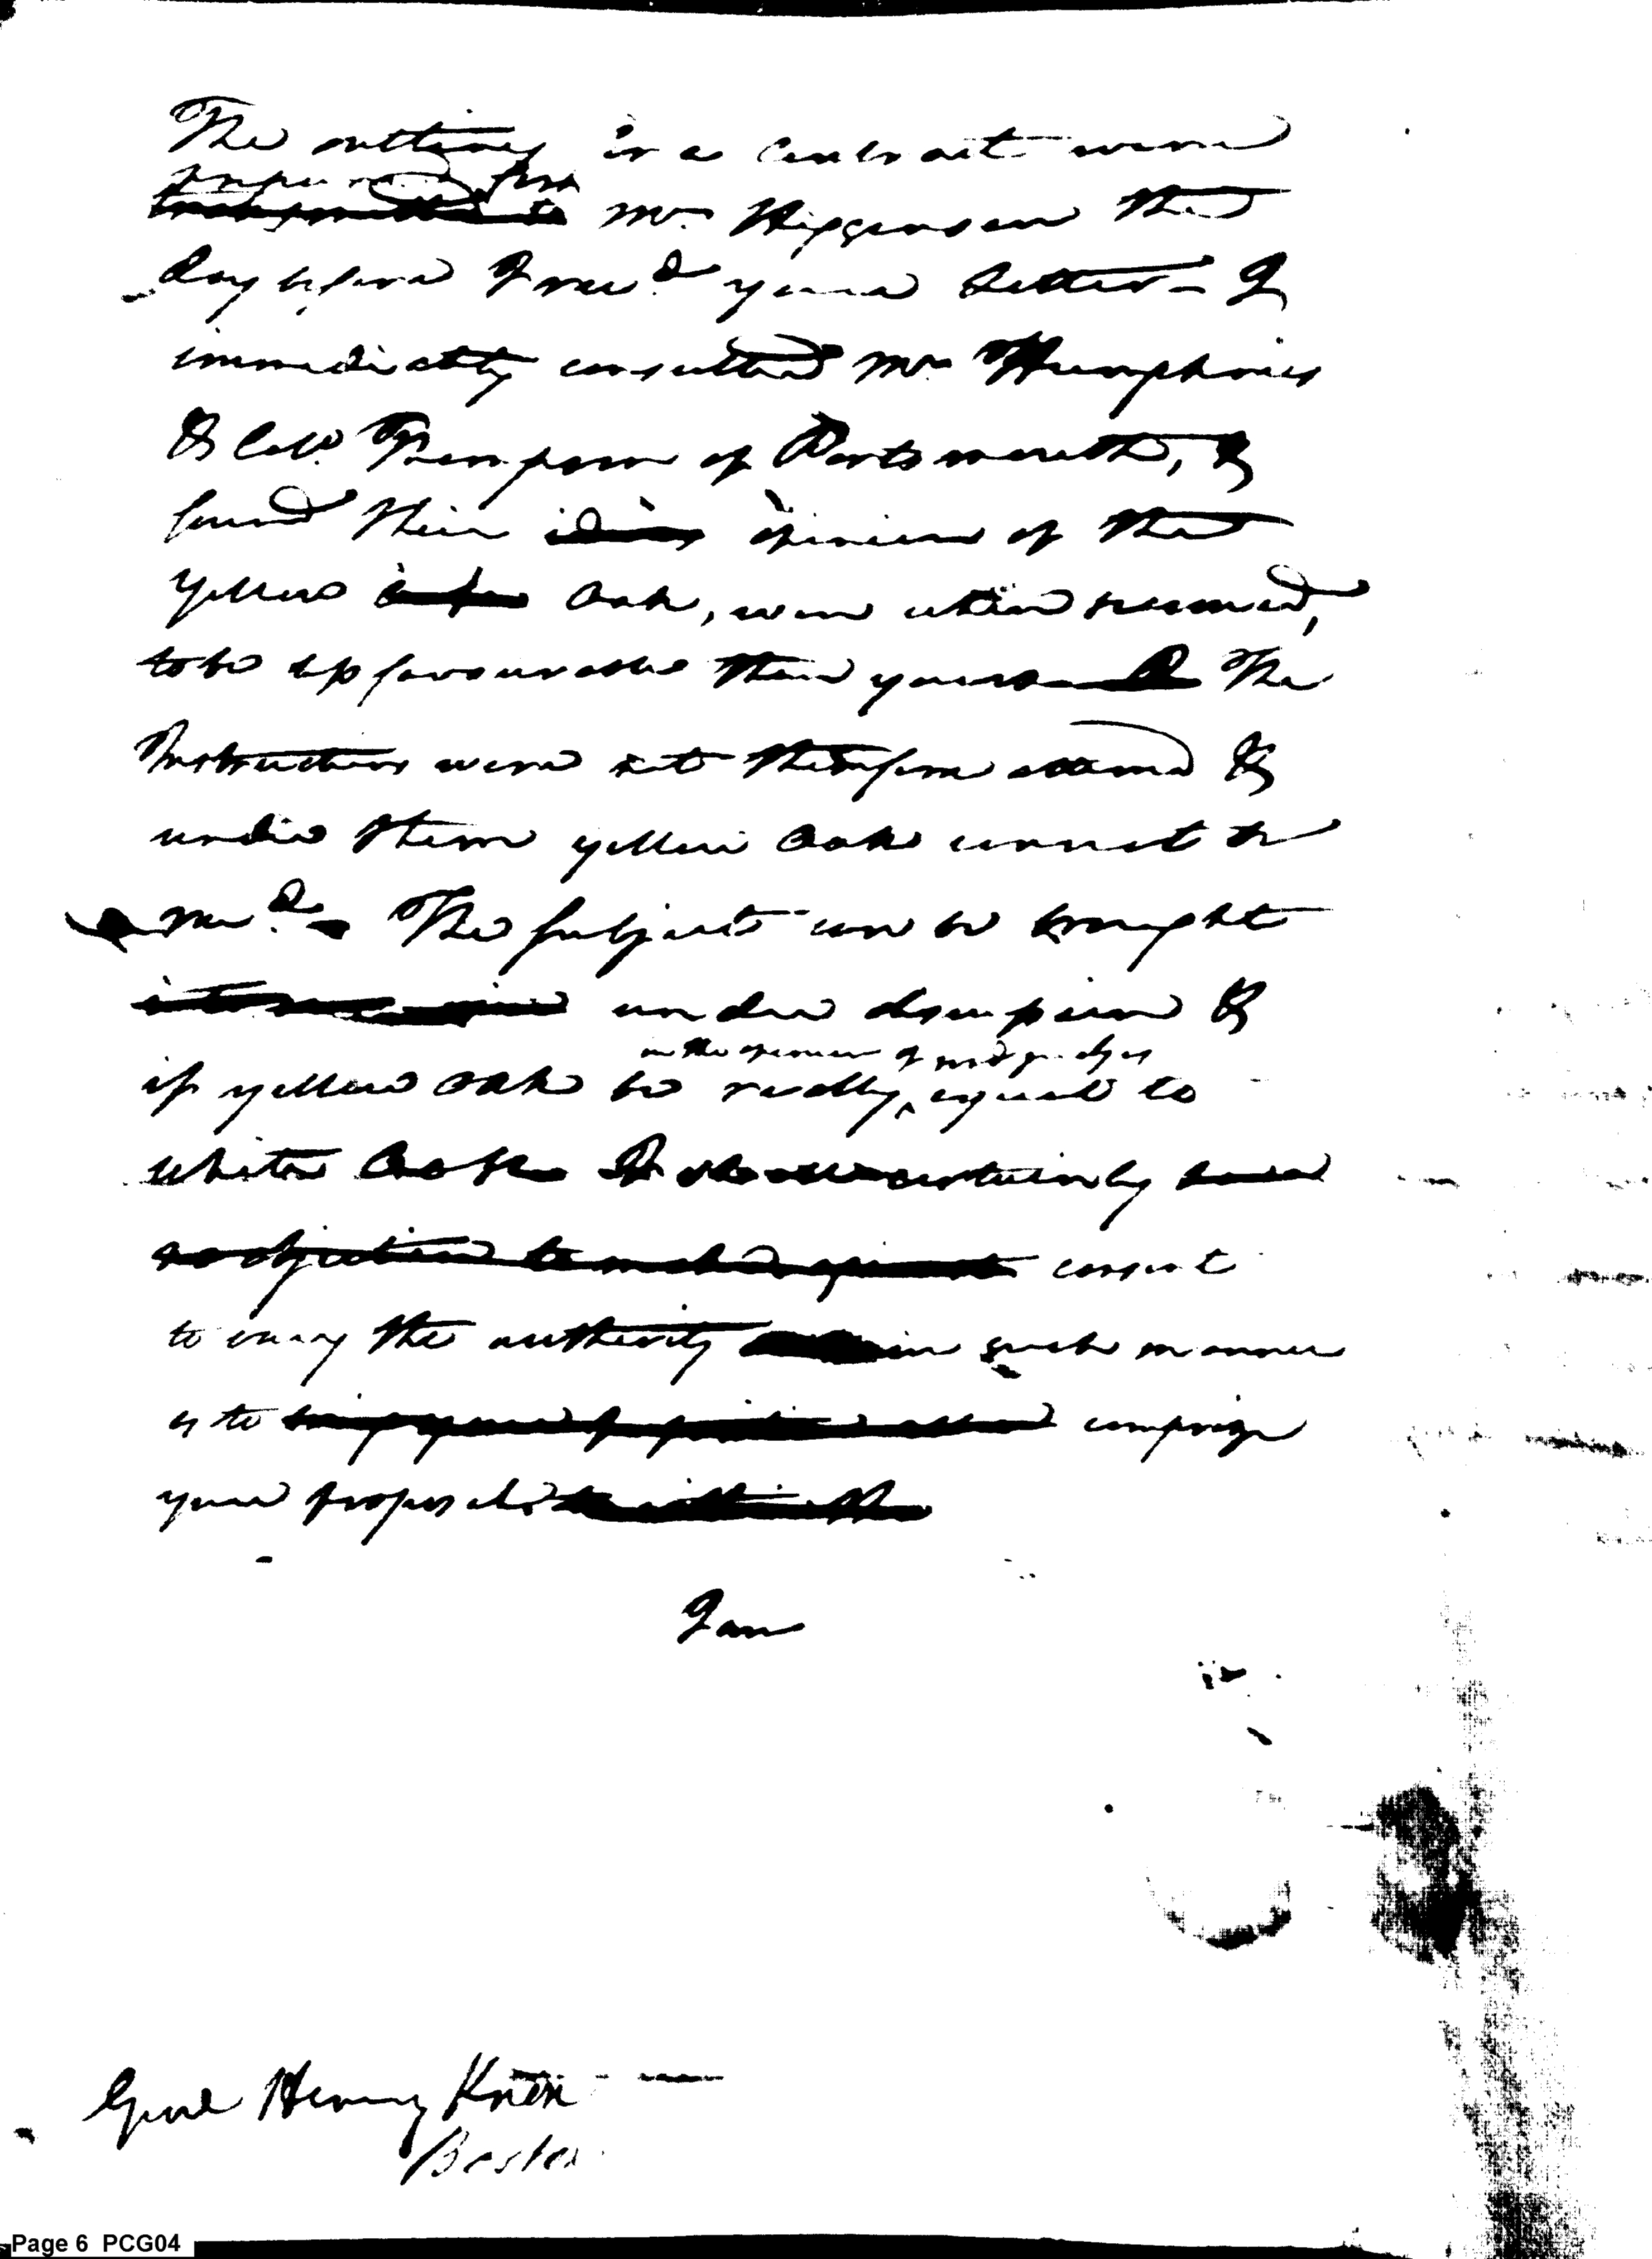 The outlines in a contract were
prepared for
Mr. Higgenson the
day before I recd. your letter - I
immediately consulted Mr Humphries
& Col. Thompson of Portsmouth, &
found their ideas opinion of the
yellow Oak, even when seasoned,
to be less favourable than yours The
Instructions were not therefore altered &
under them yellow Oak cannot be
recd. - The subject can be brought
under discussion &
in the opinion of good judges
if yellow Oak be really ^ equal to
white Oak I certainly have
no objection to make against consent
to vary the authority in such manner
as to comprize
your proposals
I am
Genl Henry Knox -
Boston
Page 6 PCG04